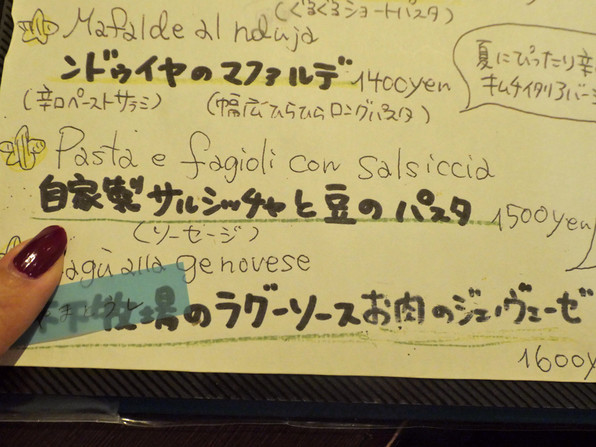 (ぐるぐるショートパスタ)
Mafalde al nduja
ンドゥイヤのマファルデ 1400yen
(辛口ペーストサラミ) (幅広ひらひらロングパスタ)
夏にぴったり辛
キムチイタリアバー
Pasta e fagioli con salsiccia
自家製サルシッチャと豆のパスタ 1500yen
(ソーセージ)
agù alla genovese
牧場のラグーソースお肉のジェノヴェーゼ
1600y